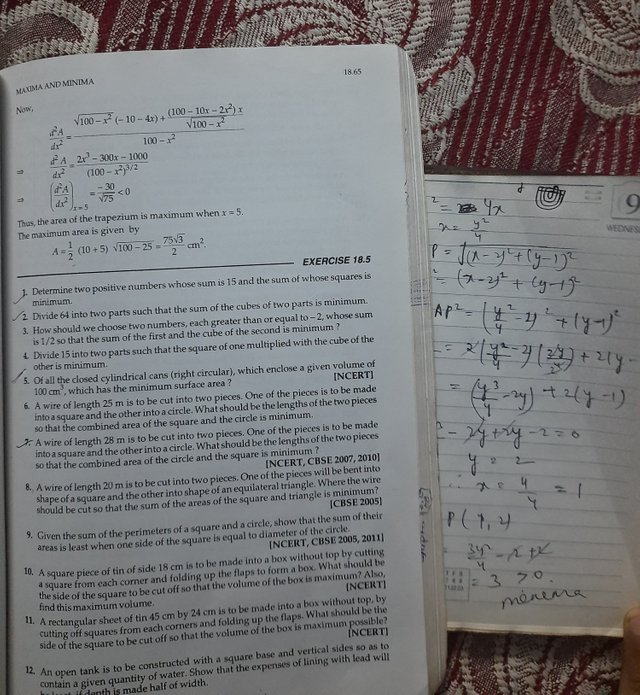 MAXIMA AND MINIMA
18.65
Now,
d²A/dx² = (√(100 – x²) (– 10 – 4x) + (100 – 10x – 2x²) x/√(100 – x²))/(100 – x²)
⇒ d²A/dx² = (2x³ – 300x – 1000)/(100 – x²)^(3/2)
⇒ (d²A/dx²)ₓ₌₅ = – 30/√75 < 0
Thus, the area of the trapezium is maximum when x = 5.
The maximum area is given by
A = 1/2 (10 + 5) √(100 – 25) = 75√3/2 cm².
EXERCISE 18.5
1. Determine two positive numbers whose sum is 15 and the sum of whose squares is
minimum.
2. Divide 64 into two parts such that the sum of the cubes of two parts is minimum.
3. How should we choose two numbers, each greater than or equal to – 2, whose sum
is 1/2 so that the sum of the first and the cube of the second is minimum ?
4. Divide 15 into two parts such that the square of one multiplied with the cube of the
other is minimum.
[NCERT]
5. Of all the closed cylindrical cans (right circular), which enclose a given volume of
100 cm³, which has the minimum surface area ?
6. A wire of length 25 m is to be cut into two pieces. One of the pieces is to be made
into a square and the other into a circle. What should be the lengths of the two pieces
so that the combined area of the square and the circle is minimum.
7. A wire of length 28 m is to be cut into two pieces. One of the pieces is to be made
into a square and the other into a circle. What should be the lengths of the two pieces
so that the combined area of the circle and the square is minimum ?
[NCERT, CBSE 2007, 2010]
8. A wire of length 20 m is to be cut into two pieces. One of the pieces will be bent into
shape of a square and the other into shape of an equilateral triangle. Where the wire
should be cut so that the sum of the areas of the square and triangle is minimum?
[CBSE 2005]
9. Given the sum of the perimeters of a square and a circle, show that the sum of their
areas is least when one side of the square is equal to diameter of the circle.
[NCERT, CBSE 2005, 2011]
10. A square piece of tin of side 18 cm is to be made into a box without top by cutting
a square from each corner and folding up the flaps to form a box. What should be
the side of the square to be cut off so that the volume of the box is maximum? Also,
find this maximum volume.
[NCERT]
11. A rectangular sheet of tin 45 cm by 24 cm is to be made into a box without top, by
cutting off squares from each corners and folding up the flaps. What should be the
side of the square to be cut off so that the volume of the box is maximum possible?
[NCERT]
12. An open tank is to be constructed with a square base and vertical sides so as to
contain a given quantity of water. Show that the expenses of lining with lead will
if depth is made half of width.
9
WEDNES
² = 4x
x = y²/4
P = √((x-2)² + (y-1)²)
² = (x-2)² + (y-1)²
AP² = (y²/4 - 2)² + (y-1)²
= 2(y²/4 - 2)(2y/4) + 2(y-
= (y³/4 - 2y) + 2(y-1)
- 2y + 2y - 2 = 0
y = 2
∴ x = 4/4 = 1
P(1, 2)
= 3y²/4 - 2 + 2
= 3 > 0
minima